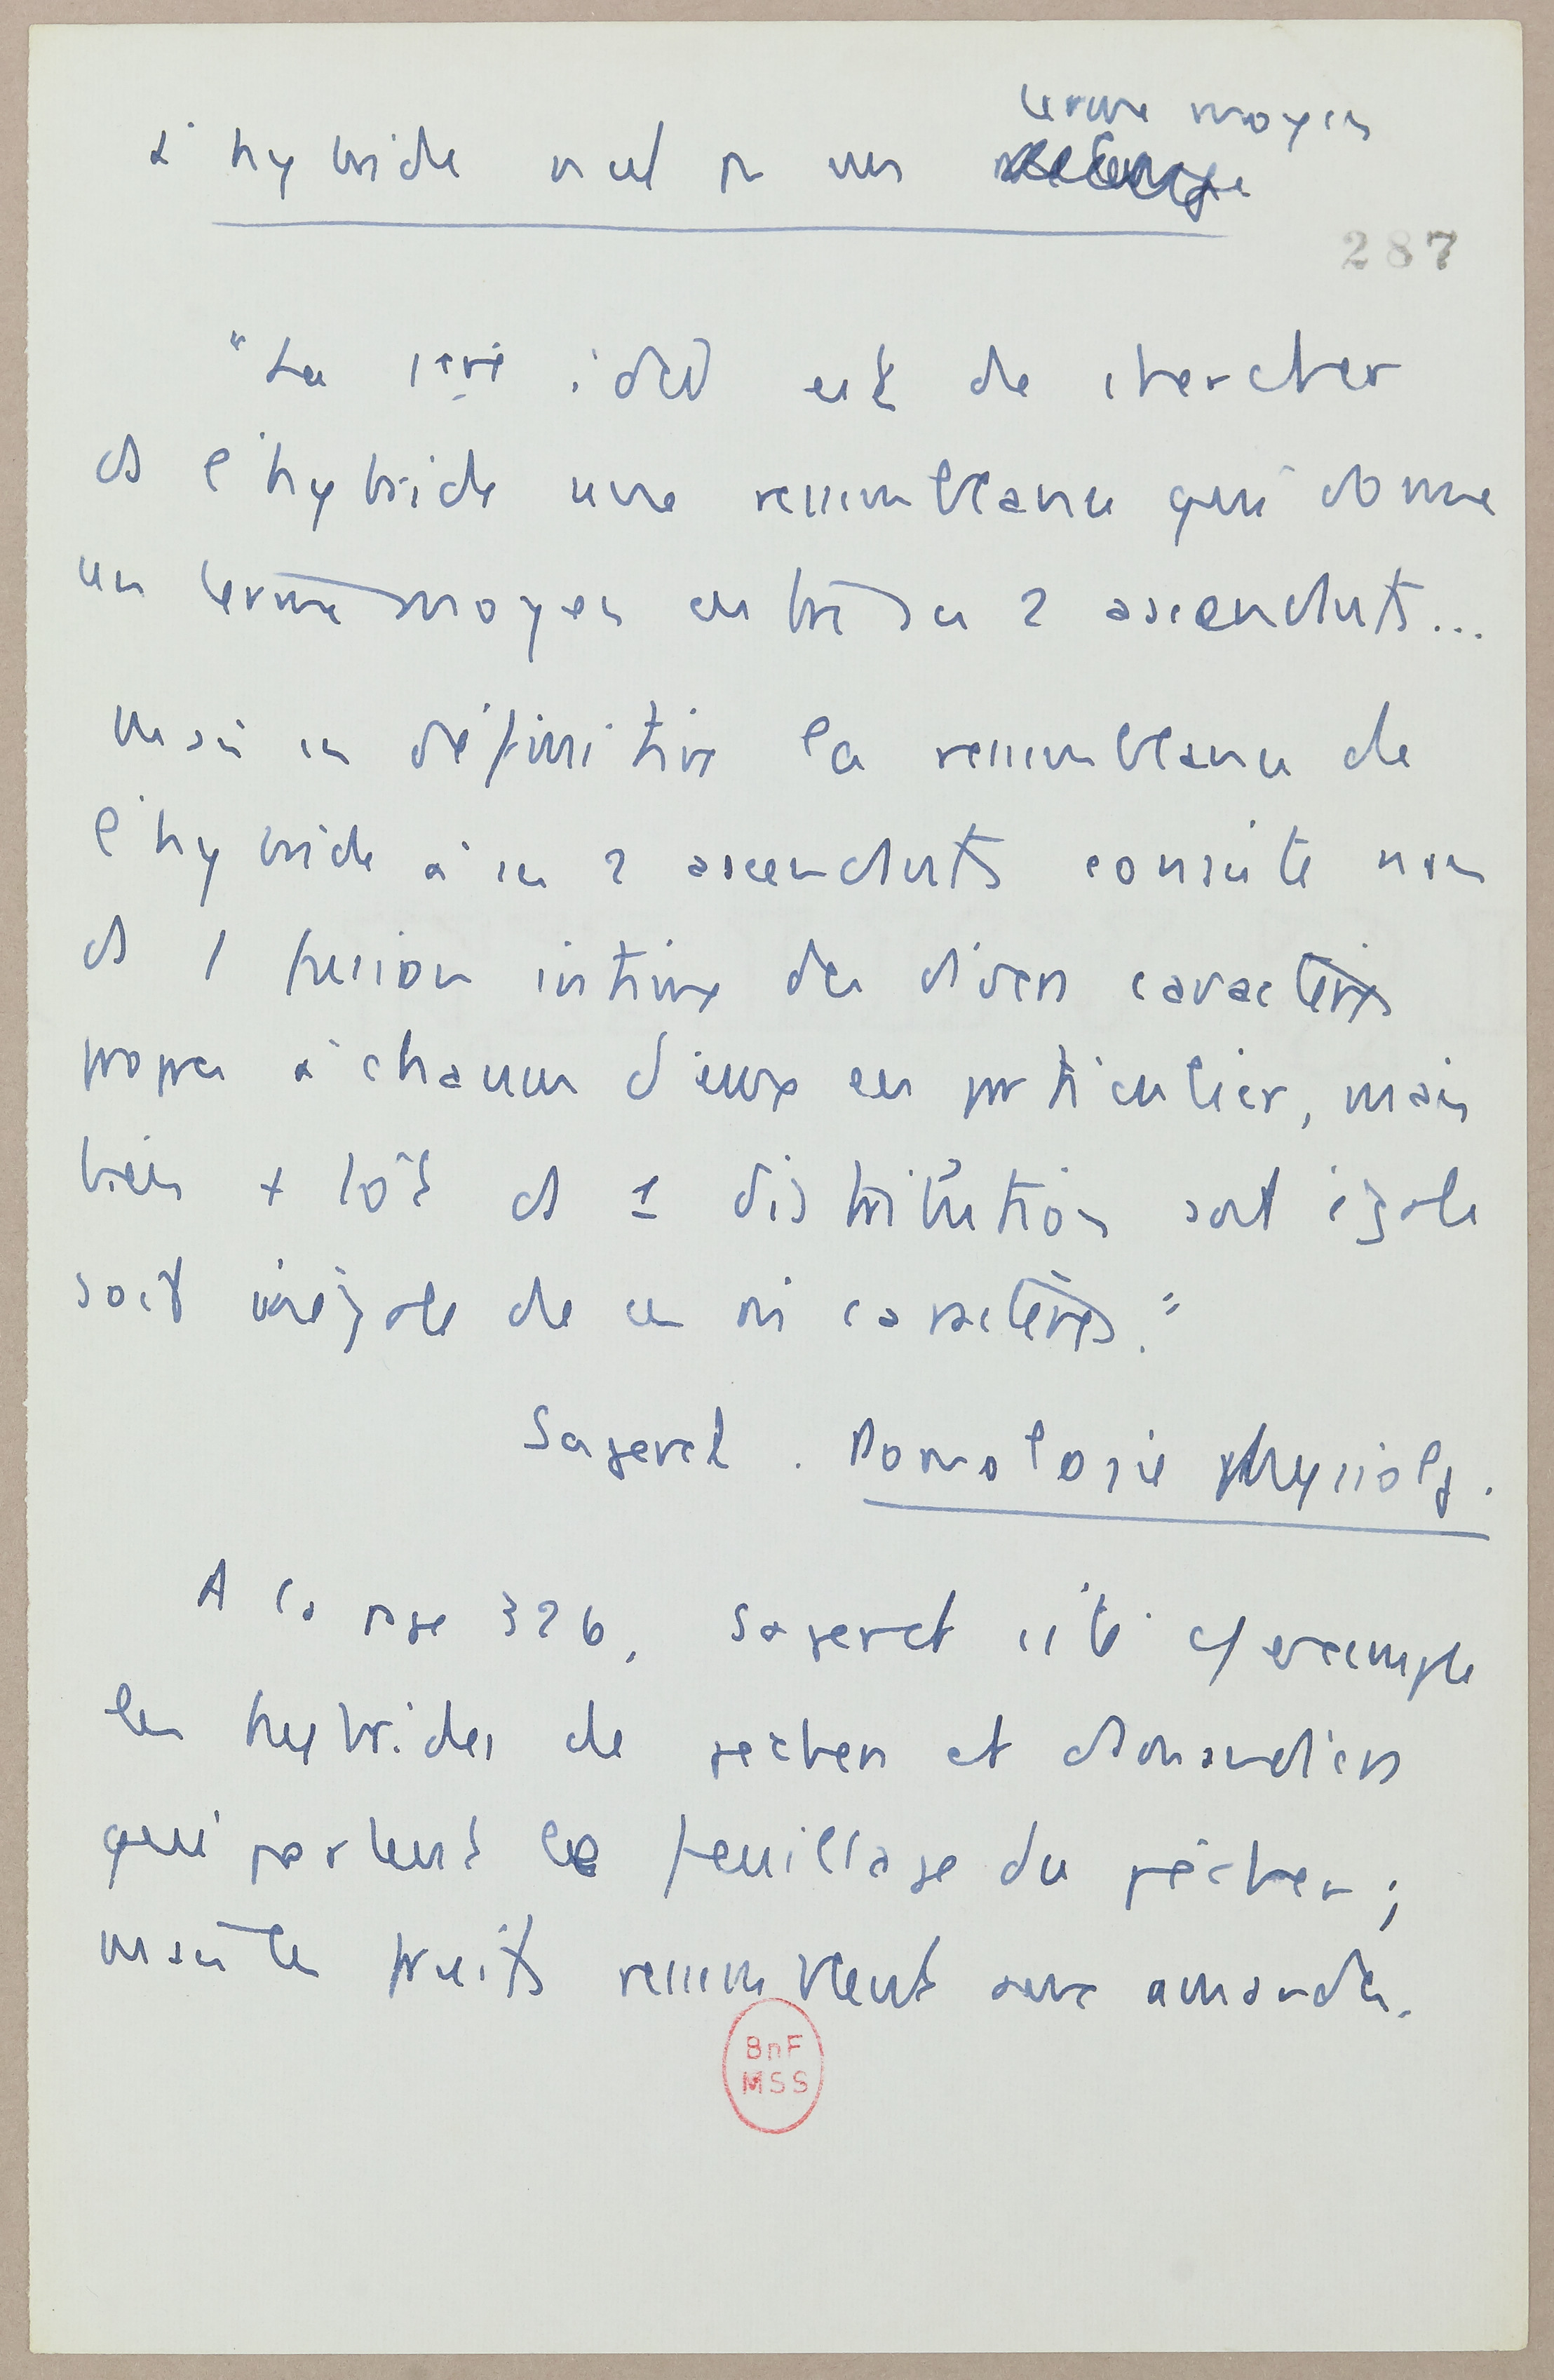 terme moyen
L'hybride n'est pas un mélange
287
"La 1ère idée est de chercher
ds l'hybride une ressemblance qui donne
un terme moyen entre ses 2 ascendants...
Mais en définitive la ressemblance de
l'hybride à ses 2 ascendants consiste non
ds 1 fusion intime des divers caractères
propres à chacun d'eux en particulier, mais
bien + tôt ds 1 distribution soit égale
soit inégale de ces mi caractères."
Sageret. Pomologie physiolg.
A la page 326, Sageret cite c/ exemple
les hybrides de pêchers et d'amandiers
qui portent le feuillage du pêcher ;
mais les fruits ressemblent aux amandes.
BnF
MSS